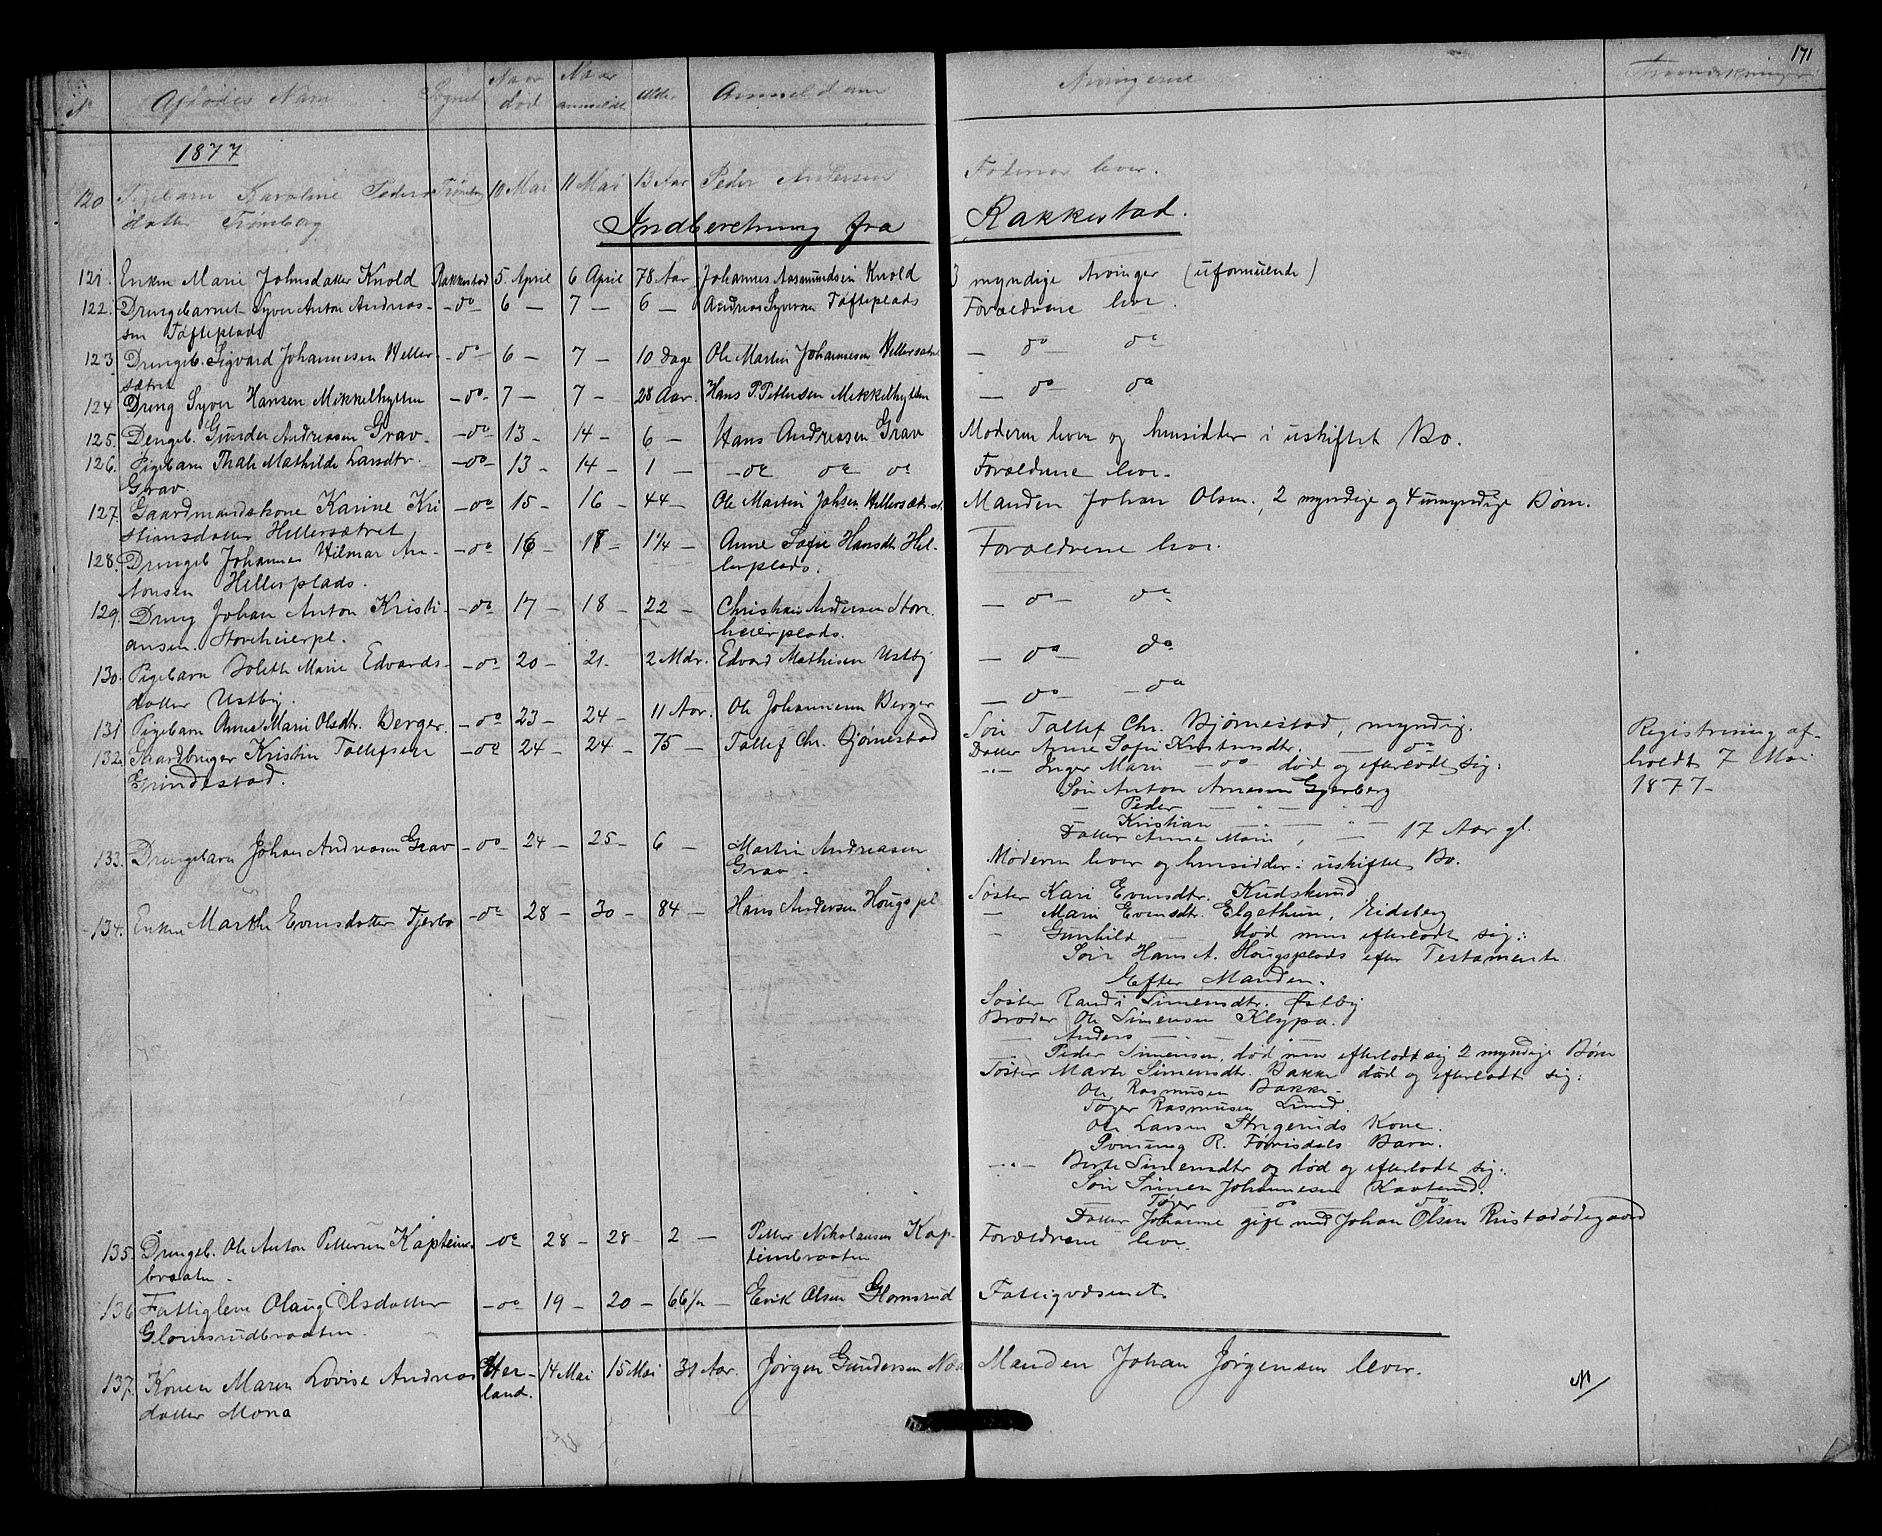 171
No Afdødes Navn Sognet Naar død Naar anmeldt Alder Anmelderen Arvingerne Anmærkninger
1877
120 Pigebarn Karoline Peders Trømborg 10 Mai 11 Mai 13 Aar Peder Andersen Faderen lever.
datter Trømborg
Indberetning fra Rakkestad.
121. Enken Marie Johnsdatter Knold Rakkestad 5. April 6 April 78 Aar Johannes Aasmundsen Knold 3 myndige Arvinger (uformuende)
122. Drengebarnet Syver Anton Andreas- -do- 6 — 7 — 6 — Andreas Syversen Tøfteplads Forældrene lever.
sen Tøfteplads
123. Drengeb. Sigvard Johannesen Heller- -do- 6 — 7 — 10 Dage Ole Martin Johannesen Hellersætret — do — do
sætret
124 Dreng Syver Hansen Mikkelhytten -do- 7 — 7 — 28 Aar. Hans P. Pettersen Mikkelhytten — do do
125. Drengeb. Gunder Andreasen Grav. -do- 13 — 14 — 6 — Hans Andreasen Grav Moderen lever og hensidder i uskiftet Bo.
126. Pigebarn Thale Mathilde Larsdtr. -do- 13 — 14 — 1 — -do do do Forældrene lever.
Grav.
127. Gaardmandskone Karine Kri -do- 15 — 16 — 44 — Ole Martin Johsen Hellersætret. Manden Johan Olsen, 2 myndige og 4 umyndige Børn.
stiansdatter Hellersætret
128. Drengeb Johannes Hilmar An- -do 16 — 18 — 1¼ — Anne Sofie Hansdtr Hel- Forældrene lever.
tonsen Hellerplads. lerplads.
129. Dreng Johan Anton Kristi- -do 17 — 18 — 22 — Christian Andersen Store — do — do
ansen. Storeheierpl. heierplads.
130. Pigebarn Bolette Marie Edvards- -do 20 — 21 — 2 Mdr. Edvard Mathisen Ustby — do — do
datter Ustby.
131 Pigebarn Anne Marie Olsdtr. Berger. -do 23 — 24 — 11 Aar. Ole Johannesen Berger — do — do
132. Gaardbruger Kristen Tollefsen -do 24 — 24 — 75 — Tollef Chr. Bjørnestad Søn Tollef Chr. Bjørnestad, myndig.
Grindestad. Datter Anne Sofie Kristensdtr. — do
-"- Inger Marie -do- død og efterladt sig:
Søn Anton Arnesen Gjerberg
— Peder — " — "
Kristian — " — "
Datter Anne Marie, — 17 Aar gl.
Registrering af-
holdt 7 Mai
1877-
133. Drengebarn Johan Andreasen Grav -do- 24 — 25 — 6 — Martin Andreasen Moderen lever og hensidder i uskiftet Bo.
Grav.
134. Enken Marthe Evensdatter Tjerbo -do- 28 — 30 — 84 — Hans Andersen Hougspl Søster Kari Evensdtr. Kudskrud
— Marie Evensdtr. Elgethun, Eidsberg
— Gunhild — død men efterladt sig:
Søn Hans A. Hougsplads efter Testamente
Efter Manden.
Søster Randi Simensdtr. Østby
Broder Ole Simensen Klypa.
— Anders — " —
— Peder Simensen, død men efterladt sig 2 myndige Børn
Søster Marte Simensdtr. Bakke død og efterladt sig:
Ole Rasmusen Bakke.
Tøger Rasmusen Lund.
Ole Larsen Kone.
R. Barn.
-"- Berte Simensdtr og død og efterladt sig:
Søn Simen Johannesen Kautund.
Tøger do do
Datter Johanne gift med Johan Olsen Rustadødegaard
135. Drengeb. Ole Anton Pettersen Kaptein- -do 28 — 28 — 2 — Petter Nikolausen Kap- Forældrene lever.
braaten. teinbraaten
136 Fattiglem Olaug Olsdatter -do 19 — 20 — 66½ — Erik Olsen Glomsrud Fattigvæsenet.
Glomsrudbraaten.
137. Konen Maren Lovise Andreas Her- 14 Mai 15 Mai 31 Aar. Jørgen Gundersen Manden Johan Jørgensen lever.
datter Mona land.